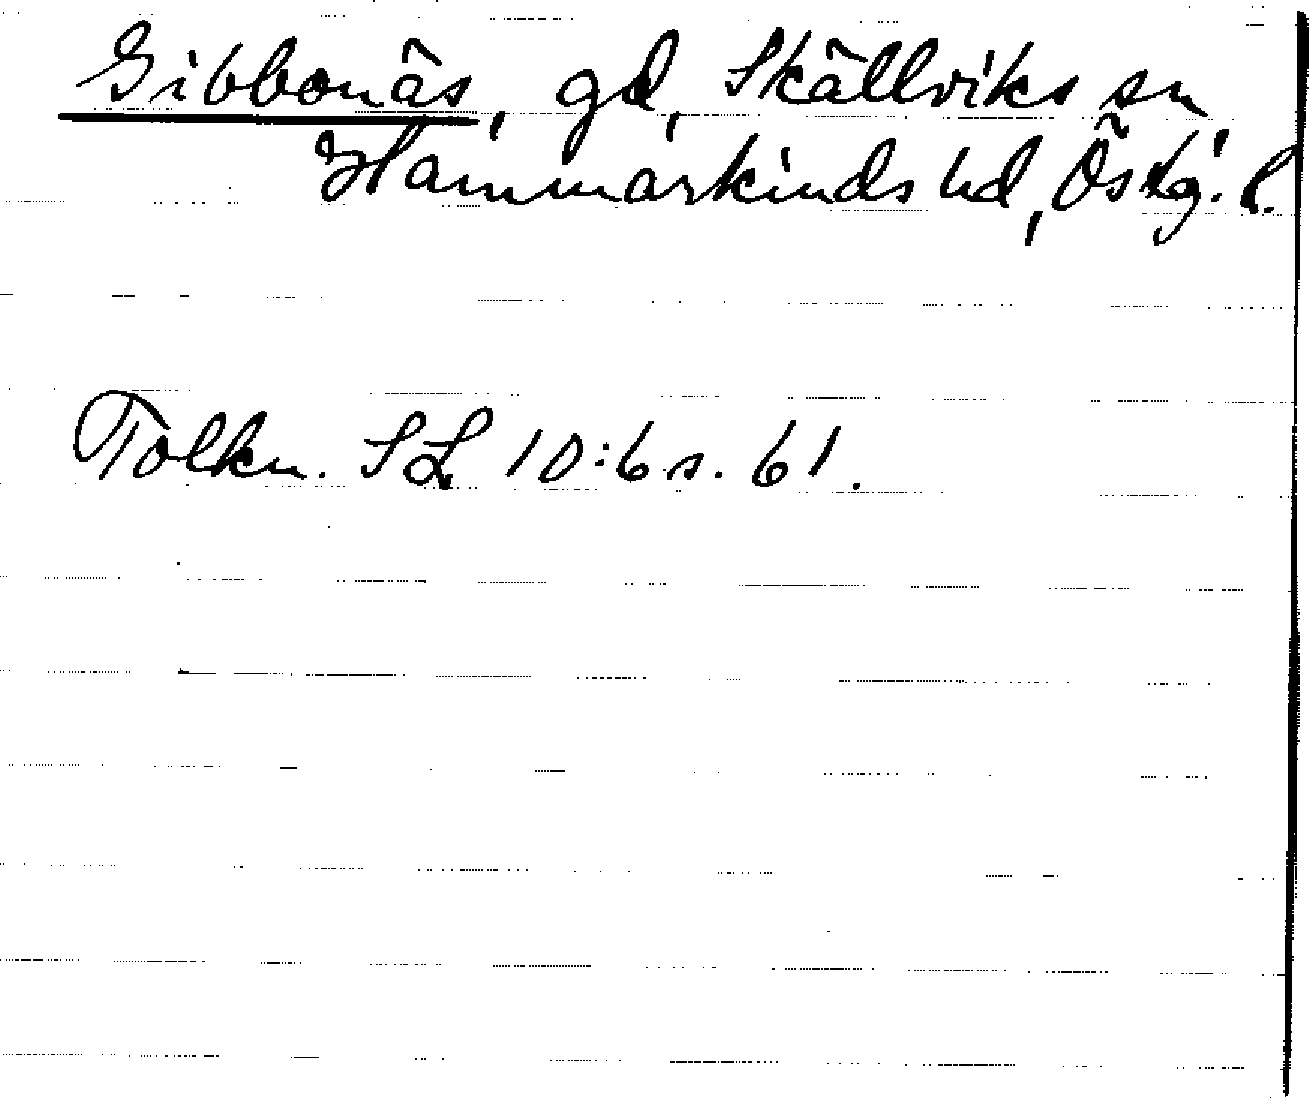 Gibbonäs, gd, Skällviks sn
Hammarkinds hd, Östg. l.
Tolkn. SL 10:6 s. 61.